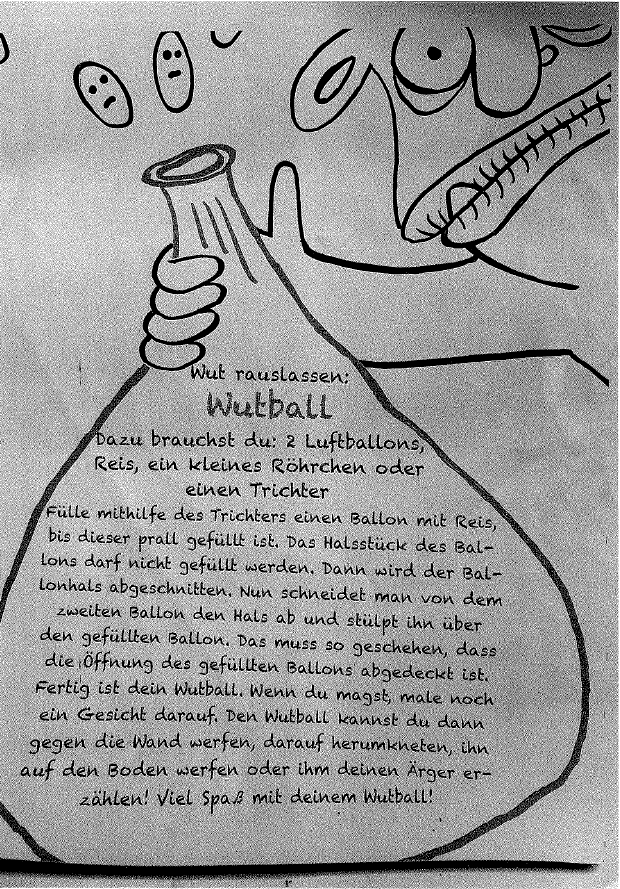 Wut rauslassen:
Wutball
Dazu brauchst du: 2 Luftballons,
Reis, ein kleines Röhrchen oder
einen Trichter
Fülle mithilfe des Trichters einen Ballon mit Reis,
bis dieser prall gefüllt ist. Das Halsstück des Bal-
lons darf nicht gefüllt werden. Dann wird der Bal-
lonhals abgeschnitten. Nun schneidet man von dem
zweiten Ballon den Hals ab und stülpt ihn über
den gefüllten Ballon. Das muss so geschehen, dass
die Öffnung des gefüllten Ballons abgedeckt ist.
Fertig ist dein Wutball. Wenn du magst, male noch
ein Gesicht darauf. Den Wutball kannst du dann
gegen die Wand werfen, darauf herumkneten, ihn
auf den Boden werfen oder ihm deinen Ärger er-
zählen! Viel Spaß mit deinem Wutball!